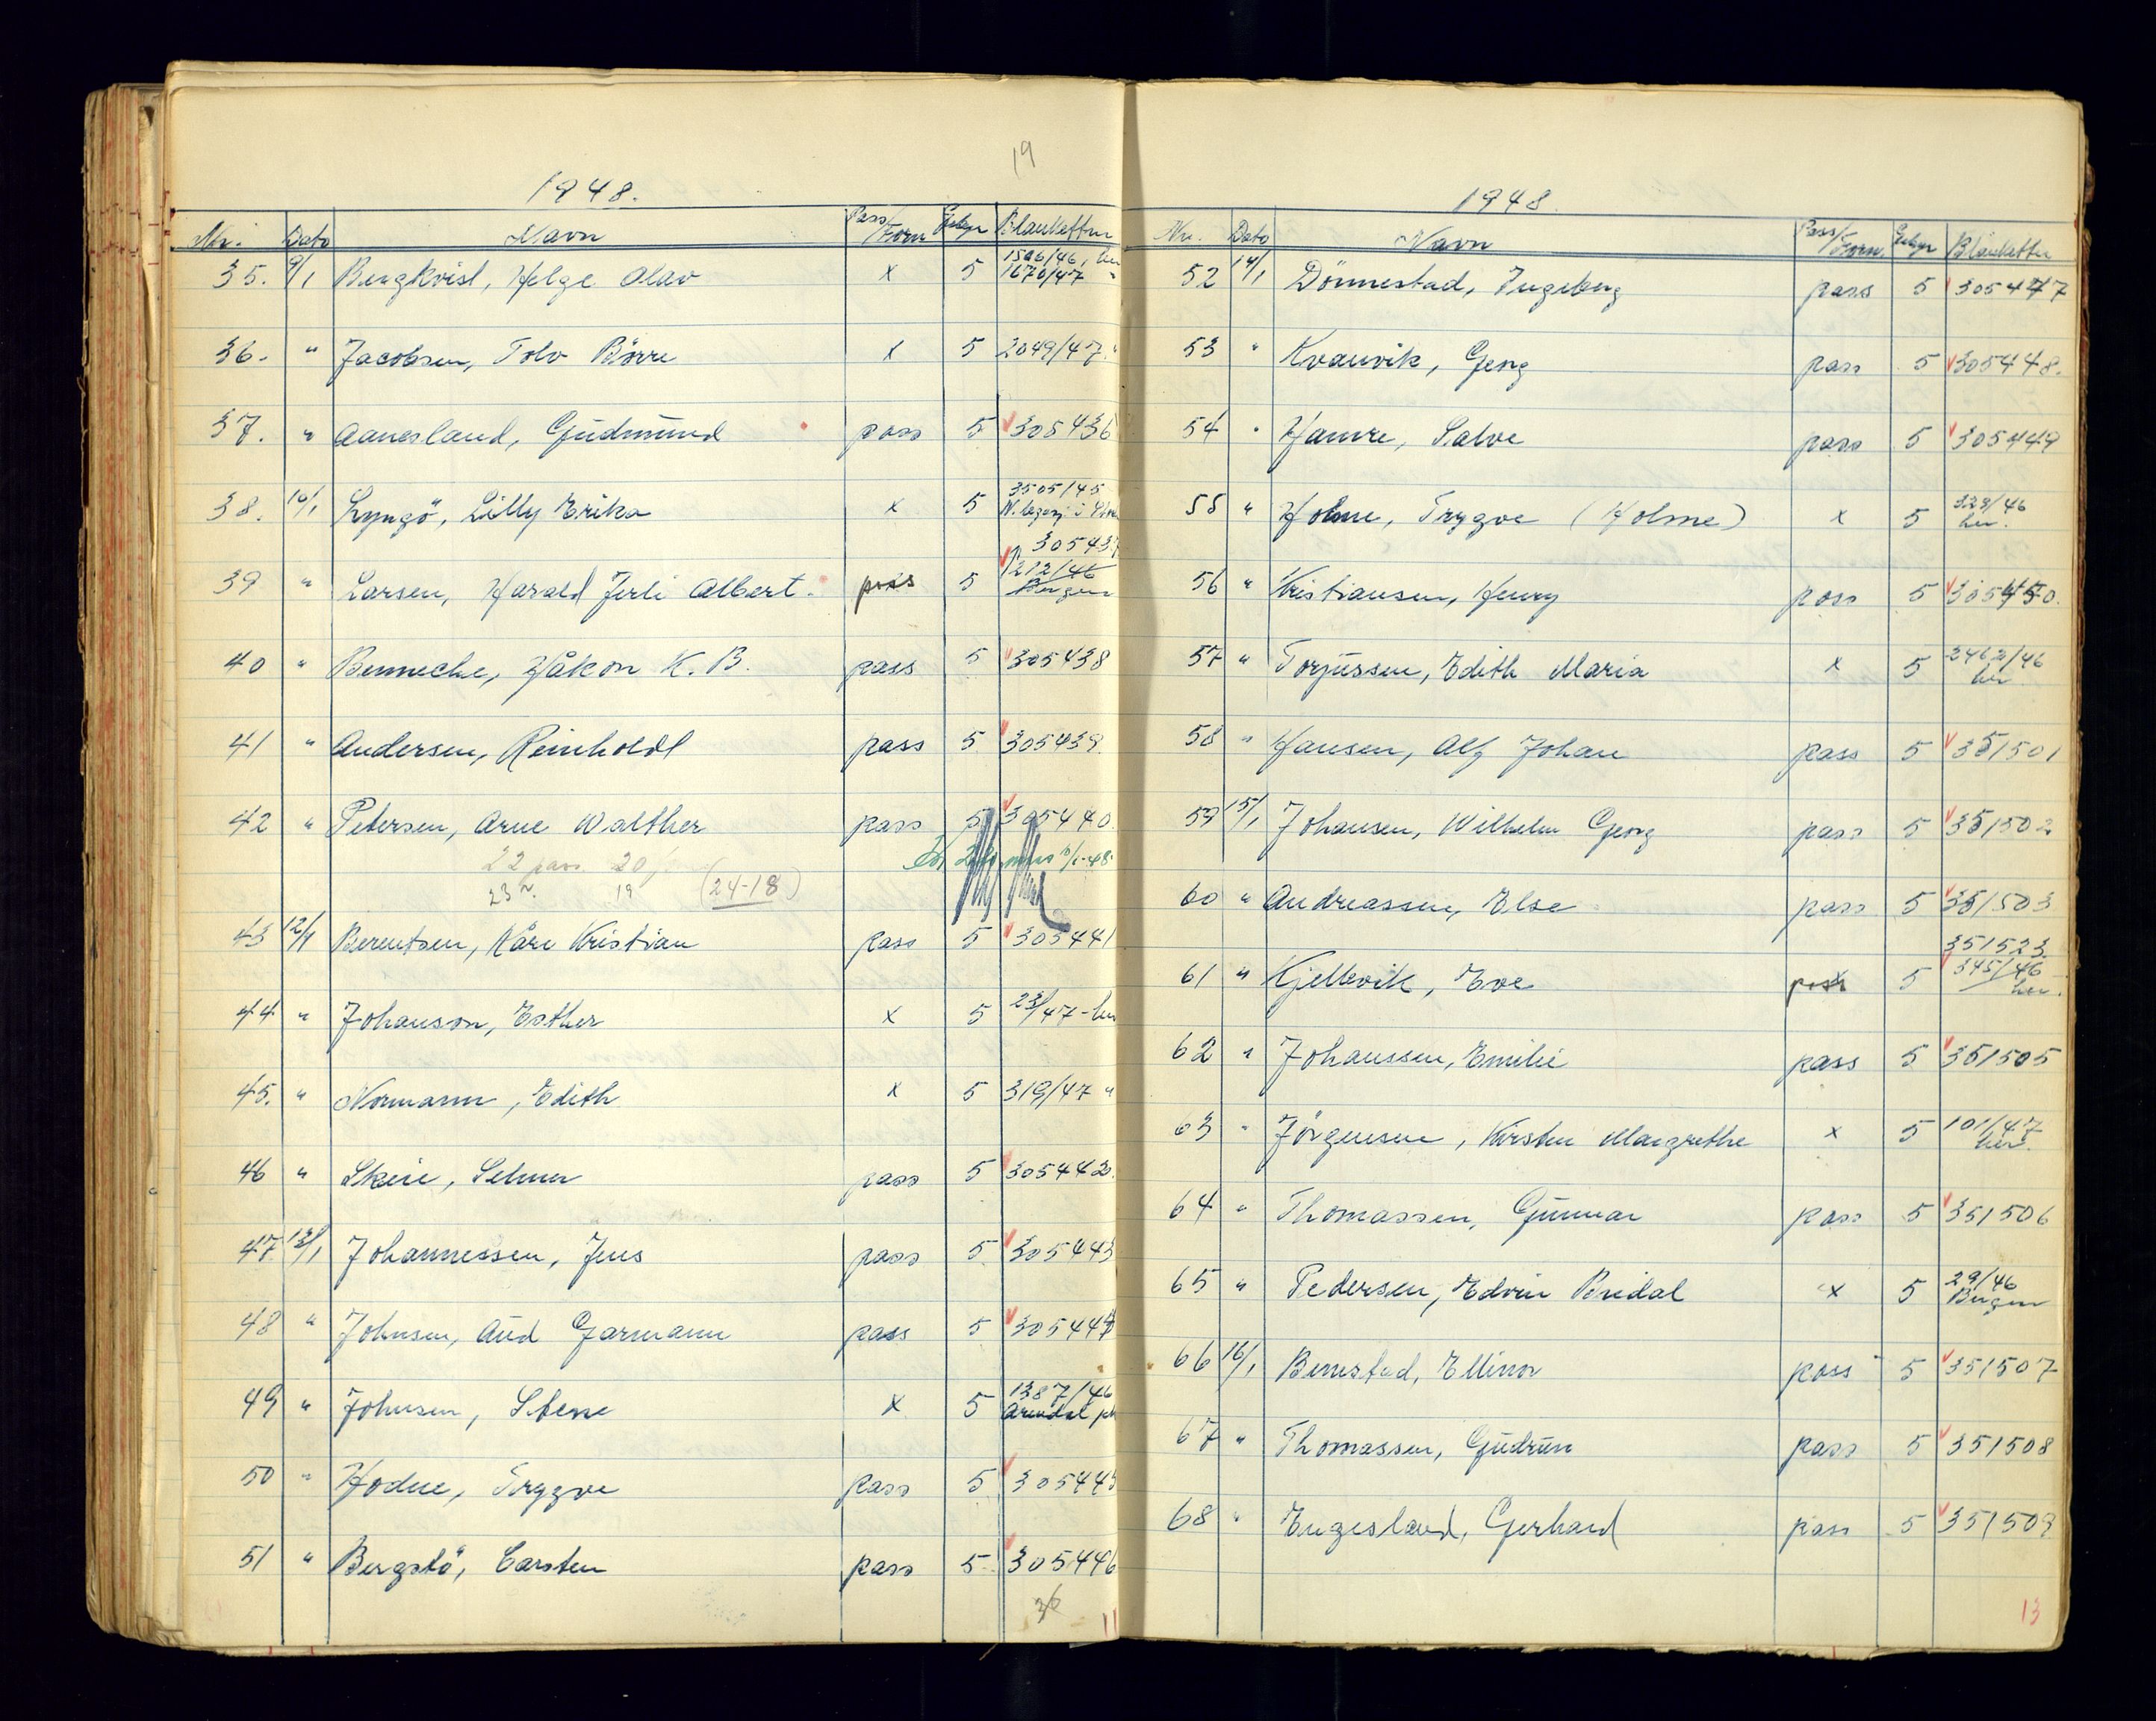 19
1948.
Nr. Dato Navn Pass/Forn Gebyr Blankettnr
35. 9/1 Bergkvist, Helge Olav x 5 1506/46, her 1670/47 "
36. " Jacobsen, Tolv Börre x 5 2049/47 "
37. " Aanesland, Gudmund pass 5 305436
38. 10/1 Lyngö, Lilly Erika x 5 3505/45
39 " Larsen, Harald Jerli Albert. pass 5 305437 1212/46 Bergen
40 " Bennecke, Håkon K. B. pass 5 305438
41 " Andersen, Reinholdt pass 5 305439
42 " Petersen, Arne Walther pass 5 305440
22 pass 20
23 " 19 (24-18)
43 12/1 Berentsen, Kåre Kristian pass 5 305441
44 " Johanson, Esther x 5 23/47 - her
45. " Normann, Edith x 5 319/47 "
46 " Skeie, Selmer pass 5 305442
47 13/1 Johannessen, Jens pass 5 305443
48 " Johnsen, Aud Garmann pass 5 305444
49 " Johnsen, Stene x 5 1387/46 Arendal pk
50 " Hodne, Trygve pass 5 305445
51 " Bergstö, Carsten pass 5 305446
36
11
1948
Nr. Dato Navn Pass/Forn. Gebyr Blankettnr
52 14/1 Dönnestad, Ingeborg pass 5 305447
53 " Kvanvik, Georg pass 5 305448.
54 " Hamre, Salve pass 5 305449
55 " Holme, Trygve (Holme) x 5 323/46 her.
56 " Kristiansen, Henry pass 5 305450.
57 " Torjussen, Edith Maria x 5 2462/46 her
58 " Hansen, Alf Johan pass 5 351501
59 15/1 Johansen, Wilhelm Georg pass 5 351502
60 " Andreassen, Else pass 5 351503
61 " Kjellevik, Eve pass 5 351523 345/46 her.
62 " Johanssen, Emilie pass 5 351505
63 " Jörgensen, Kirsten Margrethe x 5 101/47 her.
64 " Thomassen, Gunnar pass 5 351506
65 " Pedersen, Edvin Bredal x 5 29/46 Bergen
66 16/1 Benestad, Ellinor pass 5 351507
67 " Thomassen, Gudrun pass 5 351508
68 " Engesland, Gerhard pass 5 351509
13